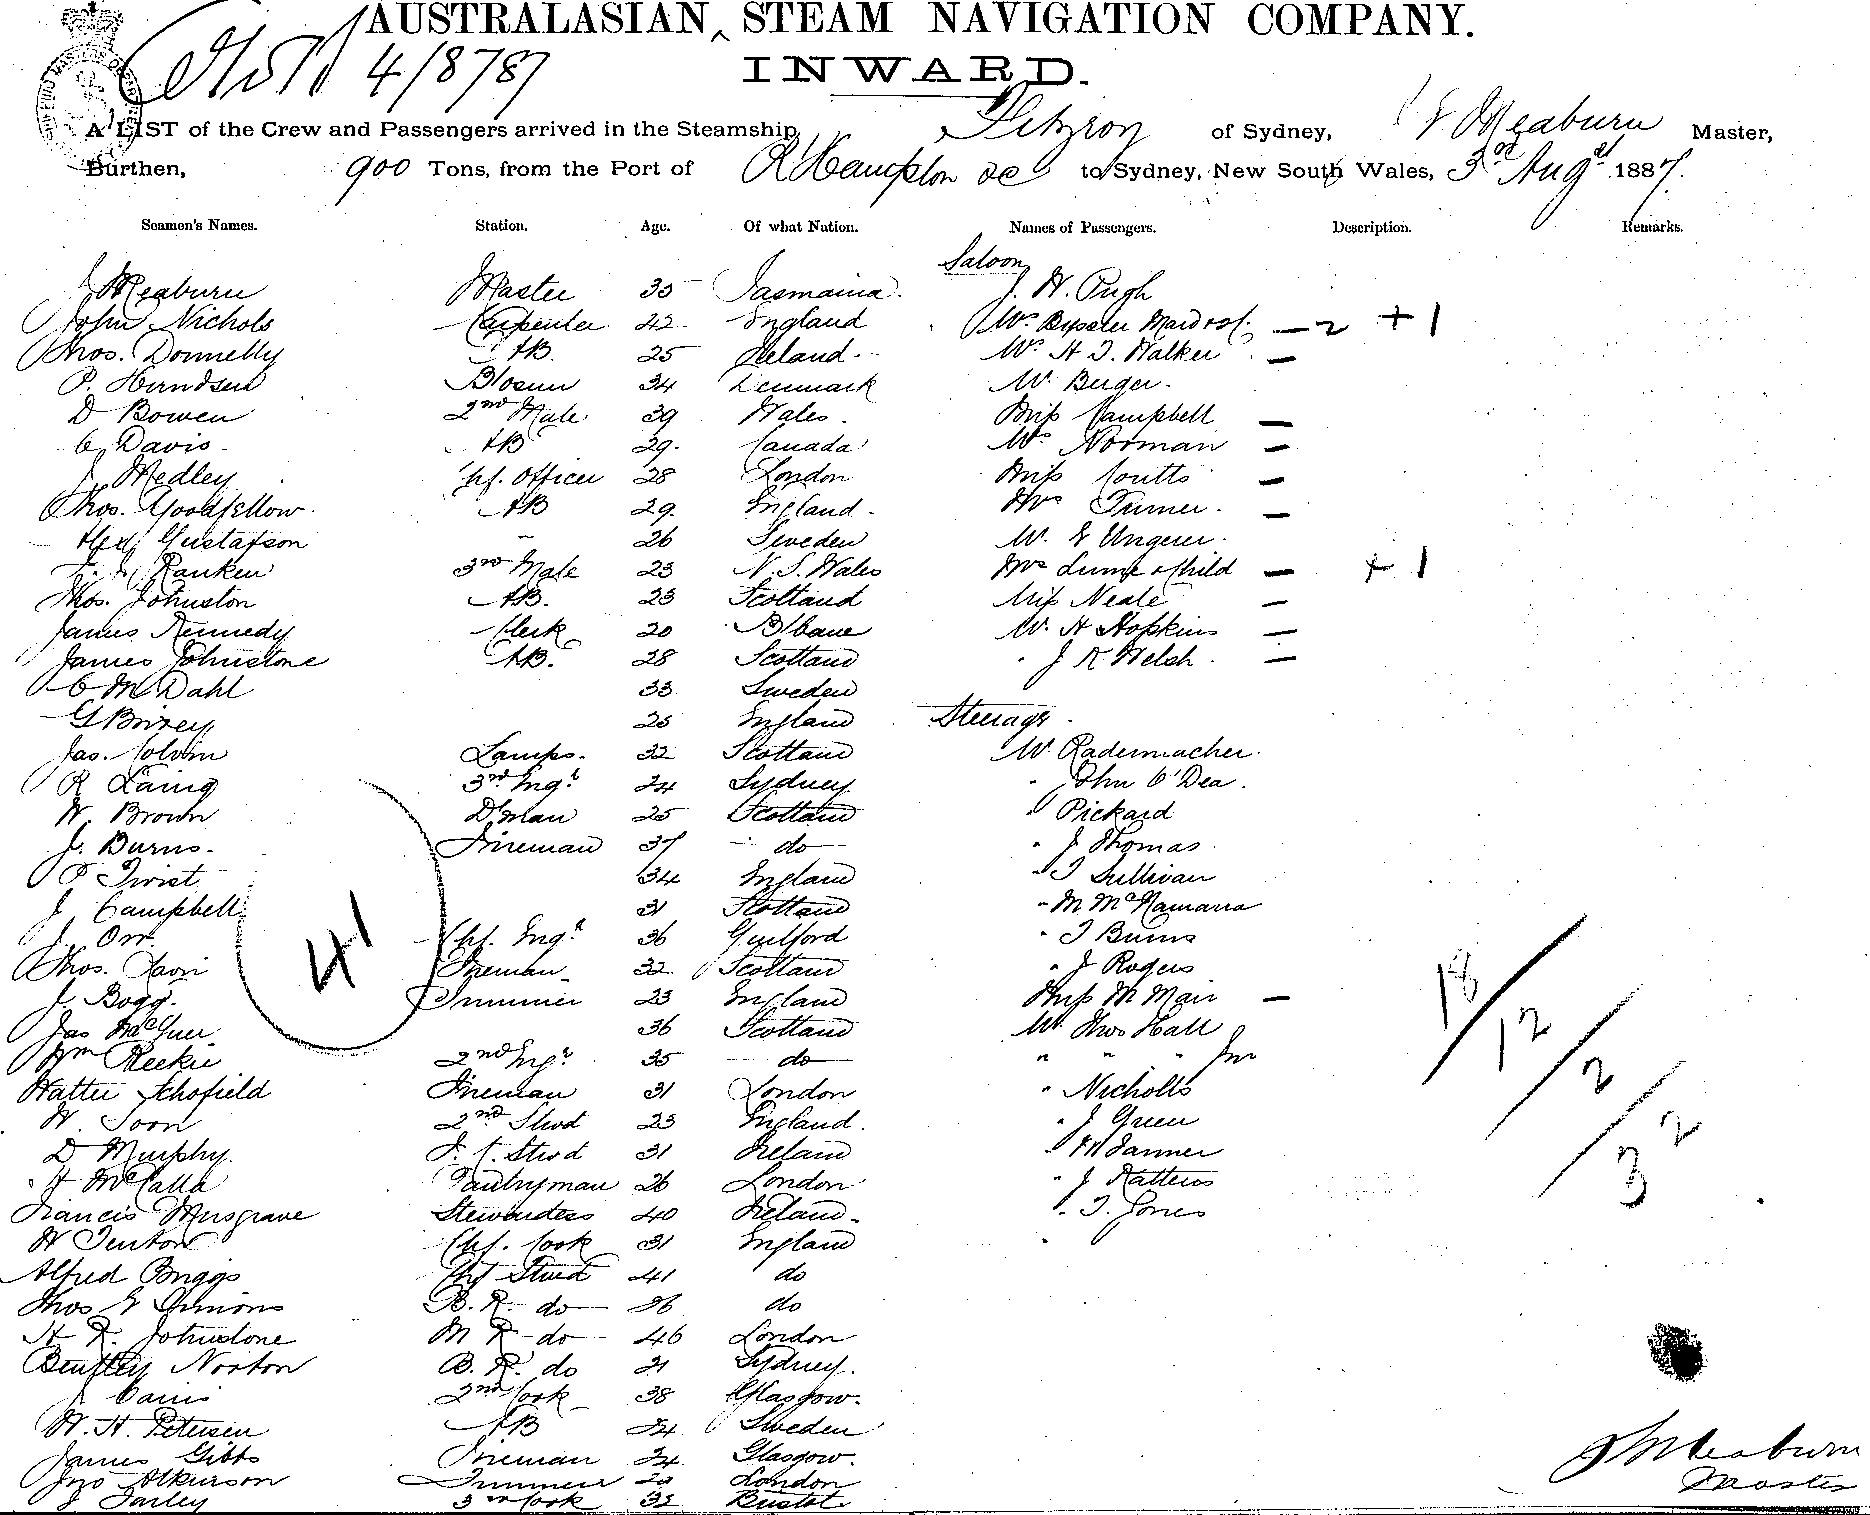 AUSTRALASIAN STEAM NAVIGATION COMPANY.
4/8/87
INWARD.
A LIST of the Crew and Passengers arrived in the Steamship Fitzroy of Sydney, J Meaburn Master,
Burthen, 900 Tons, from the Port of R'Hampton &c to Sydney, New South Wales, 3rd Augst 1887.
Seamen's Names. Station. Age. Of what Nation. Names of Passengers. Description. Remarks.
Saloon
J Meaburn Master 35 Tasmania J. W. Pugh
John Nichols Carpenter 42 England Mrs Maid + 1
Thos. Donnelly AB. 25 Ireland Mrs H J. Walker —
P. Bosun 34 Denmark Mr Berger
D Bowen 2nd Mate 39 Wales Miss Campbell —
C. Davis AB 29 Canada Mrs Norman —
J Medley Chf. Officer 28 London Miss Coutts —
Thos. Goodfellow AB 29 England Mrs Turner —
Gustafson 26 Sweden Mr E Ungerer
Ranken 3rd Mate 23 N. S. Wales Mrs & Child — + 1
Thos. Johnston AB. 23 Scotland Miss Neale —
James Kennedy Clerk 20 B'bane W. H Hopkins —
James Johnstone AB. 28 Scotland " J R Welsh —
C M Dahl 33 Sweden
G 25 England Steerage
Jas. Colvin Lamps. 32 Scotland Mr Rademacher
R Laing 3rd Engr 24 Sydney " John O'Dea
W. Brown D'man 25 Scotland " Pickard
J. Burns Fireman 37 do " J Thomas
P Twist 34 England " T Sullivan
J Campbell 31 Scotland " M McNamara
J. Orr Chf. Engr 36 Guilford " T Burns
Thos. Fireman 32 Scotland " J Rogers
J. Bogg. Trimmer 23 England Miss M Mair —
41
Jas 36 Scotland Mr Thos Hall
Wm Reekie 2nd Engr 35 do " " " Jnr
Walter Schofield Fireman 31 London " Nicholls
W. Toon 2nd Stwd 23 England. " J Green
D Murphy F. C. Stwd 31 Ireland " M Tanner
H McCalla Pantryman 26 London " J
Francis Musgrave Stewardess 40 Ireland " T. Jones
18/12/2/32
W Fenton Chf. Cook 31 England
Alfred Briggs Chf Stwd 41 do
Thos E Simions B. R. do 26 do
H R. Johnstone M R do 46 London
Bentley Norton B. R. do 21 Sydney.
J Cairns 2nd Cook 38 Glasgow.
W. H. Petersen AB 24 Sweden
James Gibbs Fireman 24 Glasgow.
Jno Atkinson Trimmer London
J Farley 3rd Cook 32 Bristol
J Meaburn
Master